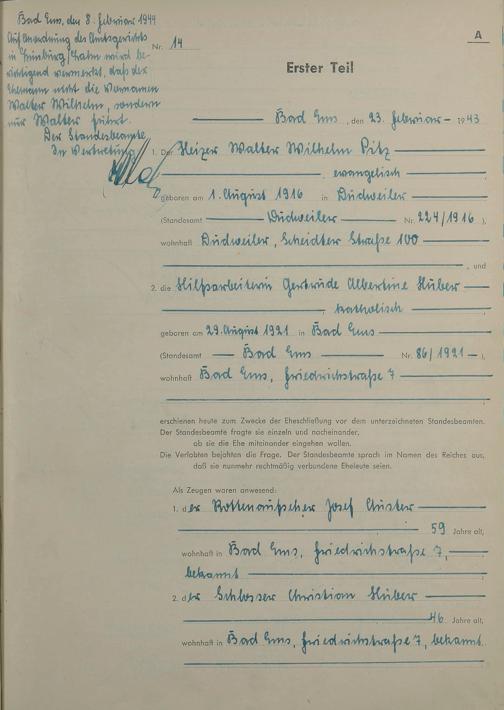 Bad Ems, den 8. Februar 1944
Auf Anordnung des Amtsgerichts
in Limburg/Lahn wird be-
richtigend vermerkt, daß der
Ehemann nicht die Vornamen
Walter Wilhelm, sondern
nur Walter führt.
Der Standesbeamte
In Vertretung
A
Nr. 14
Erster Teil
Bad Ems, den 23. Februar 1943
1. Der Heizer Walter Wilhelm Pitz
evangelisch
geboren am 1. August 1916 in Dudweiler
(Standesamt Dudweiler Nr. 224/1916),
wohnhaft Dudweiler, Scheidter Straße 100
, und
2. die Hilfsarbeiterin Gertrude Albertine Huber
, katholisch
geboren am 29. August 1921 in Bad Ems
(Standesamt Bad Ems Nr. 86/1921),
wohnhaft Bad Ems, Friedrichstraße 7
erschienen heute zum Zwecke der Eheschließung vor dem unterzeichneten Standesbeamten.
Der Standesbeamte fragte sie einzeln und nacheinander,
ob sie die Ehe miteinander eingehen wollen.
Die Verlobten bejahten die Frage. Der Standesbeamte sprach im Namen des Reiches aus,
daß sie nunmehr rechtmäßig verbundene Eheleute seien.
Als Zeugen waren anwesend:
1. der Rottenaufseher Josef
59 Jahre alt,
wohnhaft in Bad Ems, Friedrichstraße 7,
bekannt
2. der Schlosser Christian Huber
46 Jahre alt,
wohnhaft in Bad Ems, Friedrichstraße 7, bekannt.